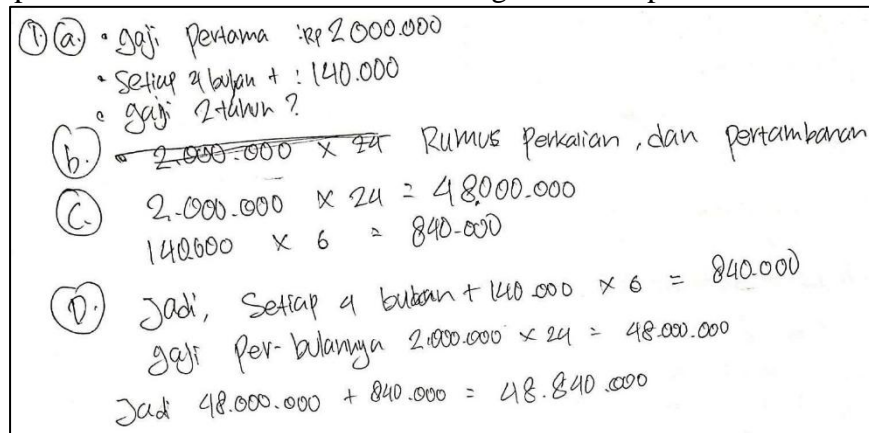 ① ⓐ • gaji pertama : Rp 2000.000
• Setiap 4 bulan + : 140.000
• gaji 2 tahun ?
b. • 2.000.000 x 24 Rumus Perkalian, dan pertambahan
C. 2.000.000 x 24 = 48.000.000
140.000 x 6 = 840.000
D. Jadi, Setiap 4 bulan + 140.000 x 6 = 840.000
gaji Per-bulannya 2.000.000 x 24 = 48.000.000
Jadi 48.000.000 + 840.000 = 48.840.000